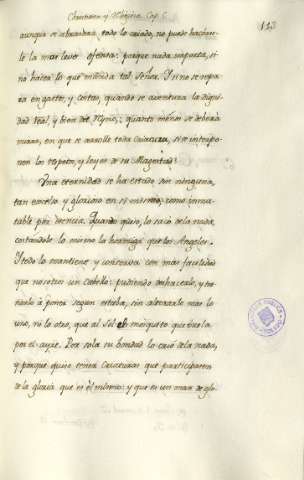 Christiana y Religiosa. Cap. 6.
113
aunque se abrasára, todo lo criado, no puede hacerse-
le la mas leve ofensa: porque nada importa, si-
no hacer lo que manda tal Señor. Y si no se repa-
ra en gastos, y costas, quando se aventura la digni-
dad Real, y bien del Reyno; quanto menos se deberia
mirar, en que se asuele toda Criatura, si se interpo-
nen los respetos, y leyes de su Magestad?
Una eternidad se ha estado sin ninguna,
tan excelso, y glorioso en si mismo, como inmu-
table por esencia. Quando quiso, lo sacó de la nada
costandole lo mismo la hormiga que los Angeles.
Y todo lo mantiene y conserva con mas facilidad
que nosotros un cabello: pudiendo deshacerlo, y tor-
narlo á poner segun estaba, sin alterarle mas lo
uno, ni lo otro, que al Sol el mosquito que vuela
por el ayre. Por sola su bondad lo crió de la nada,
y porque quiso tener Criaturas que participasen
de la gloria que es él mismo: y que es un mar de glo-